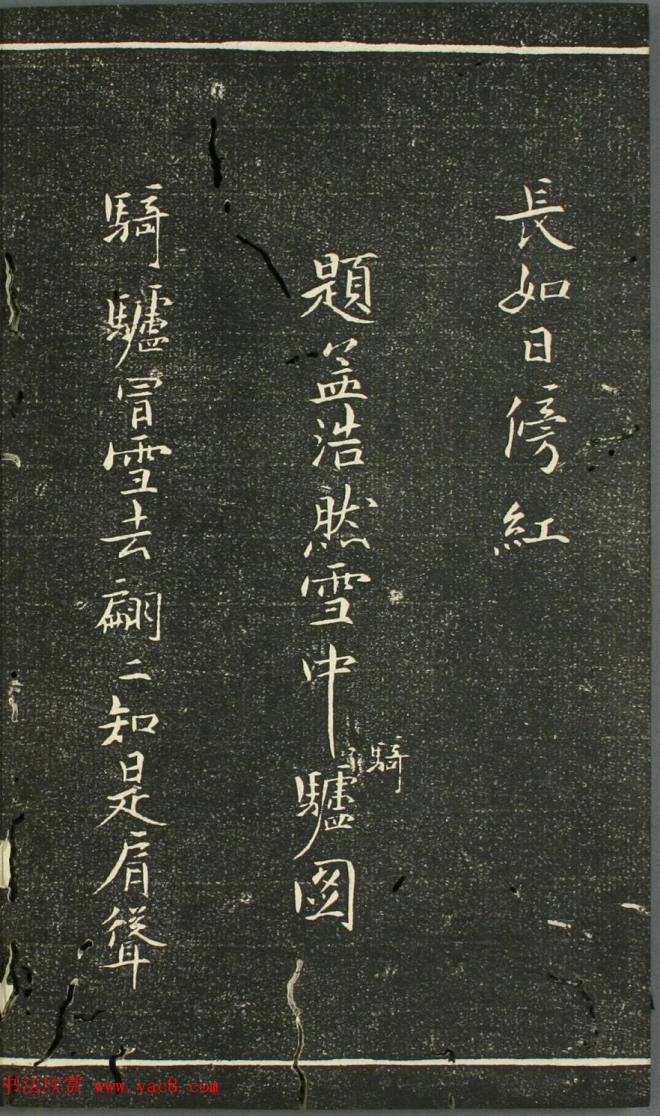 長如日傍紅
題孟浩然雪中騎驢圖
騎驢冒雪去翩二知是肩聳
书法欣赏 www.yac8.com